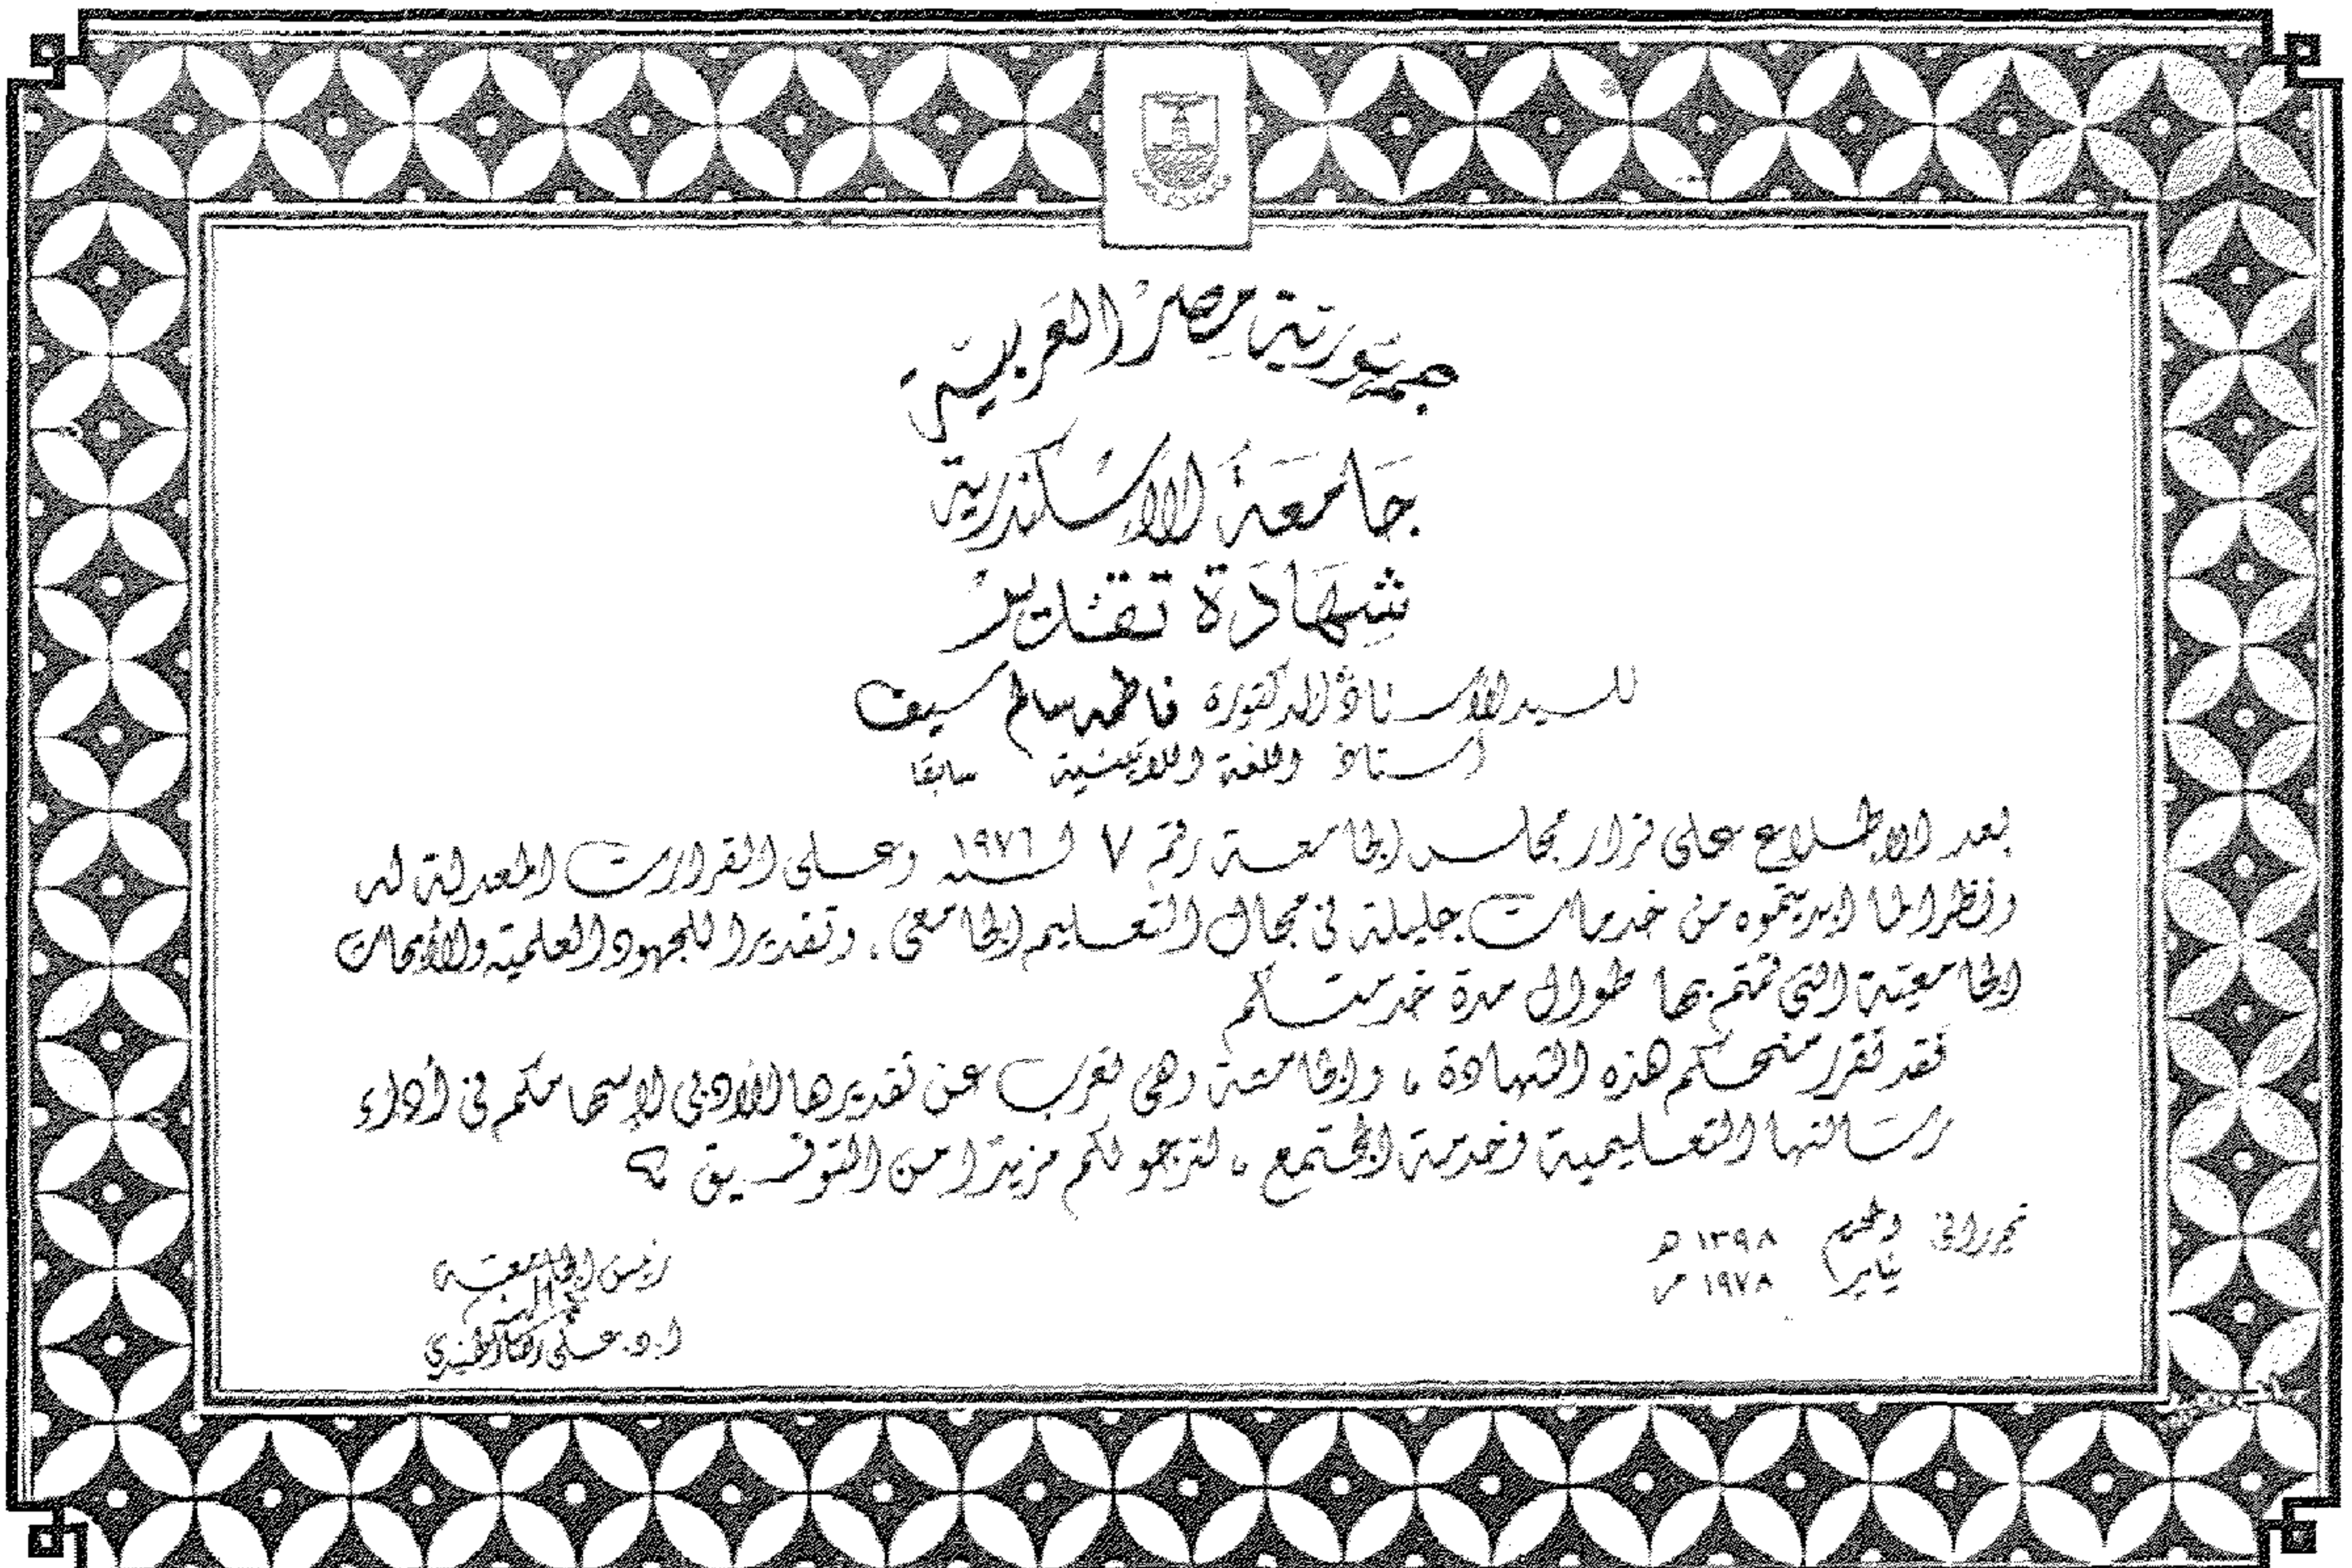 جمهورية مصر العربية
جامعة الإسكندرية
شهادة تقدير
للسيد الأستاذ الدكتورة فاطمه سالم سيف
أستاذ اللغة اللاتينية سابقا
بعد الاطلاع على قرار مجلس الجامعة رقم ٧ لسنه ١٩٧٦ وعلى القرارات المعدلة له
ونظرا لما أبديتموه من خدمات جليلة فى مجال التعليم الجامعى، وتقديرا للجهود العلمية والأبحاث
الجامعية التى قمتم بها طوال مدة خدمتكم
فقد تقرر منحكم هذه الشهادة، والجامعة وهى تعرب عن تقديرها الأدبى لإسهامكم فى أداء
رسالتها التعليمية وخدمة المجتمع، لترجو لكم مزيدًا من التوفيق
تحريرا فى
١٣٩٨ هـ
يناير ١٩٧٨ م
رئيس الجامعة
ا.د. على